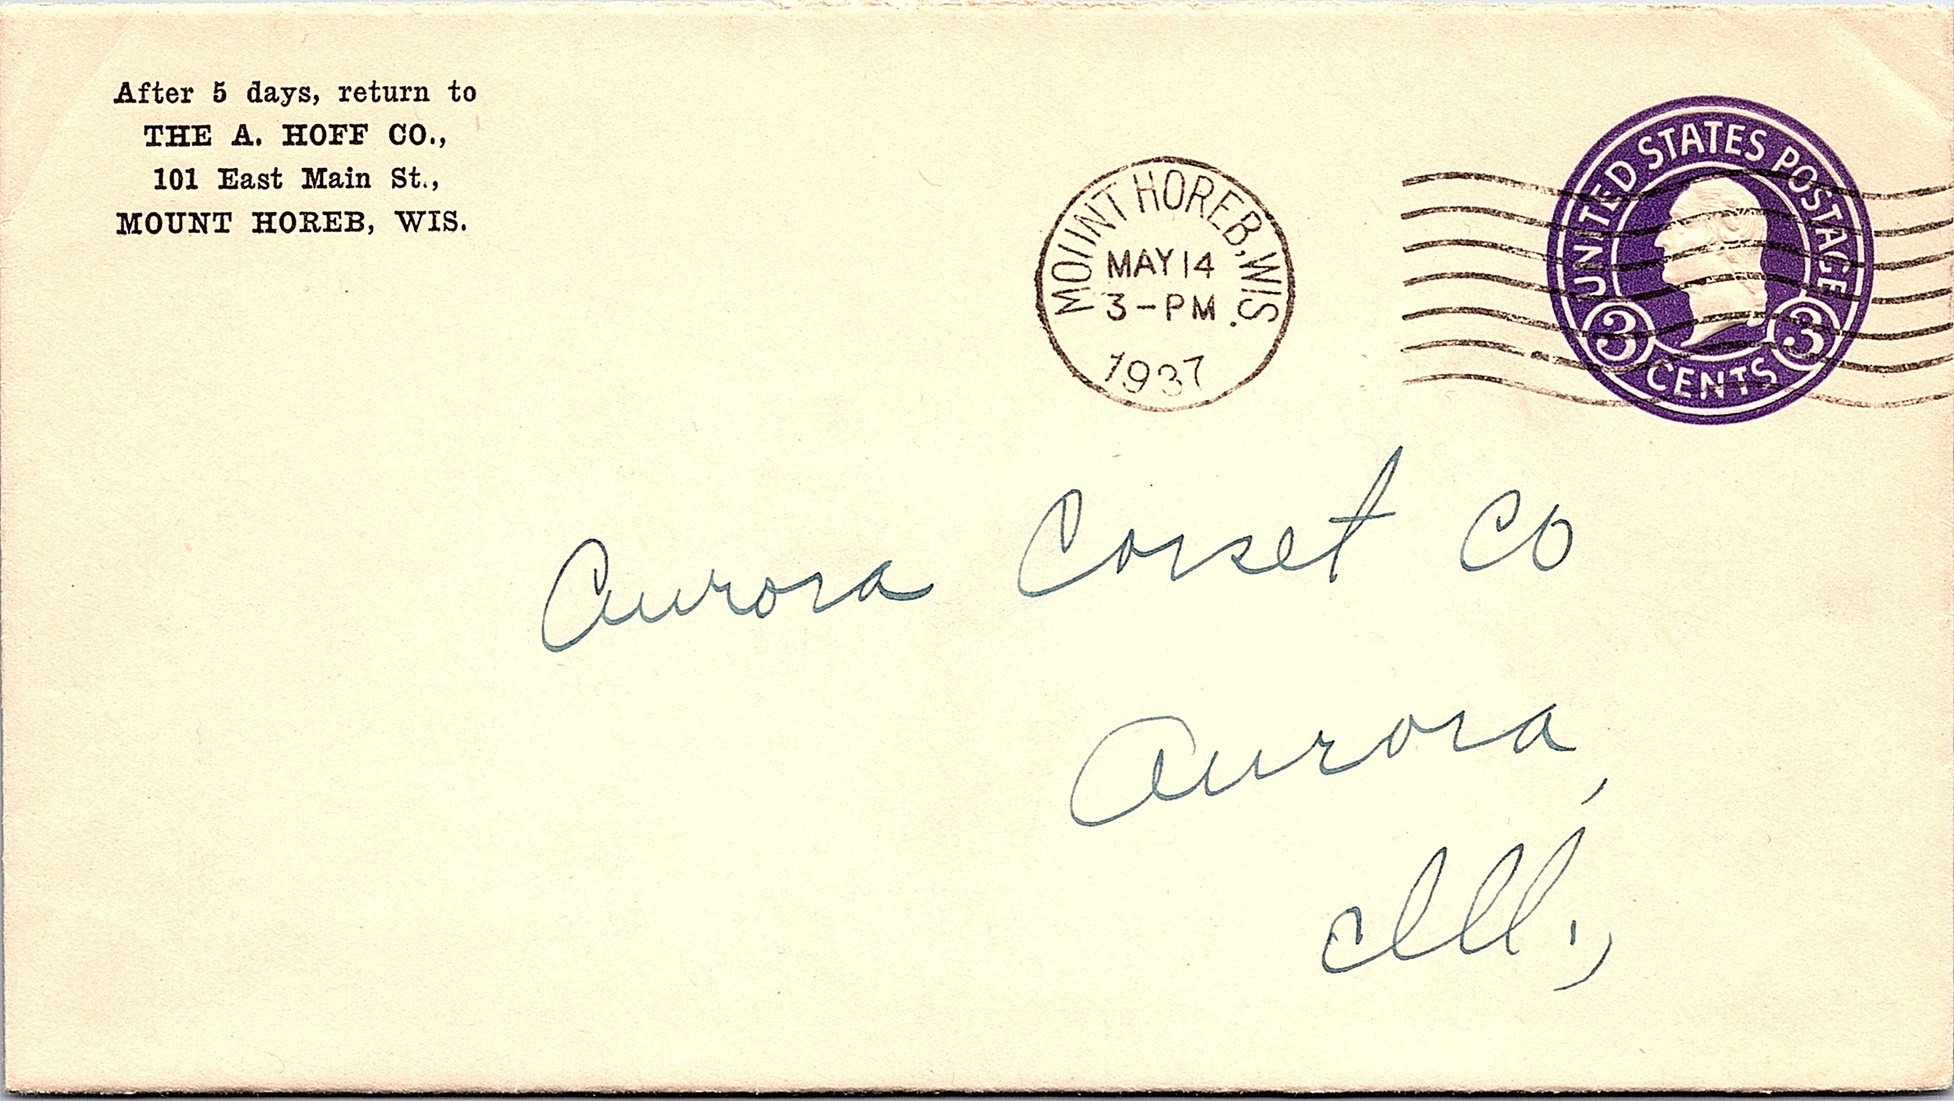 After 5 days, return to
THE A. HOFF CO.,
101 East Main St.,
MOUNT HOREB, WIS.
MOUNT HOREB, WIS.
MAY 14
3-PM
1937
UNITED STATES POSTAGE
3 3
CENTS
Aurora Corset Co
Aurora,
Ill.,